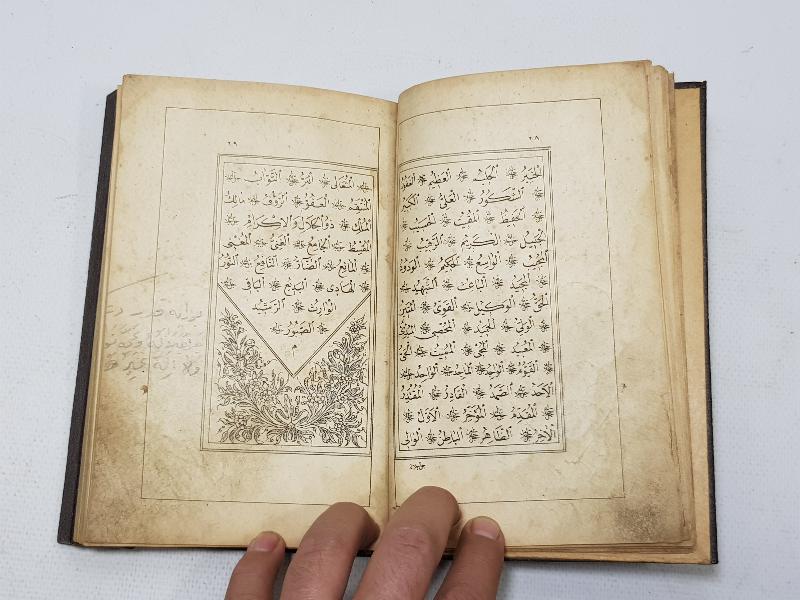 ٢٨
اَلْخَبِيرُ اَلْحَلِيمُ اَلْعَظِيمُ اَلْغَفُورُ
اَلشَّكُورُ اَلْعَلِيُّ اَلْكَبِيرُ
اَلْحَفِيظُ اَلْمُقِيتُ اَلْحَسِيبُ
اَلْجَلِيلُ اَلْكَرِيمُ اَلرَّقِيبُ
اَلْمُجِيبُ اَلْوَاسِعُ اَلْحَكِيمُ اَلْوَدُودُ
اَلْمَجِيدُ اَلْبَاعِثُ اَلشَّهِيدُ
اَلْحَقُّ اَلْوَكِيلُ اَلْقَوِيُّ اَلْمَتِينُ
اَلْوَلِيُّ اَلْحَمِيدُ اَلْمُحْصِي اَلْمُبْدِئُ
اَلْمُعِيدُ اَلْمُحْيِي اَلْمُمِيتُ اَلْحَيُّ
اَلْقَيُّومُ اَلْوَاجِدُ اَلْمَاجِدُ اَلْوَاحِدُ
اَلْاَحَدُ اَلصَّمَدُ اَلْقَادِرُ اَلْمُقْتَدِرُ
اَلْمُقَدِّمُ اَلْمُؤَخِّرُ اَلْاَوَّلُ
اَلْاٰخِرُ اَلظَّاهِرُ اَلْبَاطِنُ اَلْوَالِي
٢٩
اَلْمُتَعَالِي اَلْبَرُّ اَلتَّوَّابُ
اَلْمُنْتَقِمُ اَلْعَفُوُّ اَلرَّؤُفُ مَالِكُ
الْمُلْكِ ذُو الْجَلَالِ وَالْاِكْرَامِ
اَلْمُقْسِطُ اَلْجَامِعُ اَلْغَنِيُّ اَلْمُغْنِي
اَلْمَانِعُ اَلضَّارُّ اَلنَّافِعُ اَلنُّورُ
اَلْهَادِي اَلْبَدِيعُ اَلْبَاقِي
اَلْوَارِثُ اَلرَّشِيدُ
اَلصَّبُورُ
م